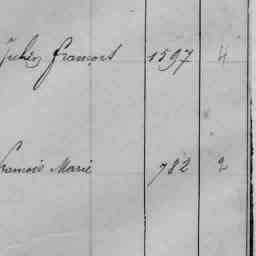 Julien François 1597 4
François Marie 782 2